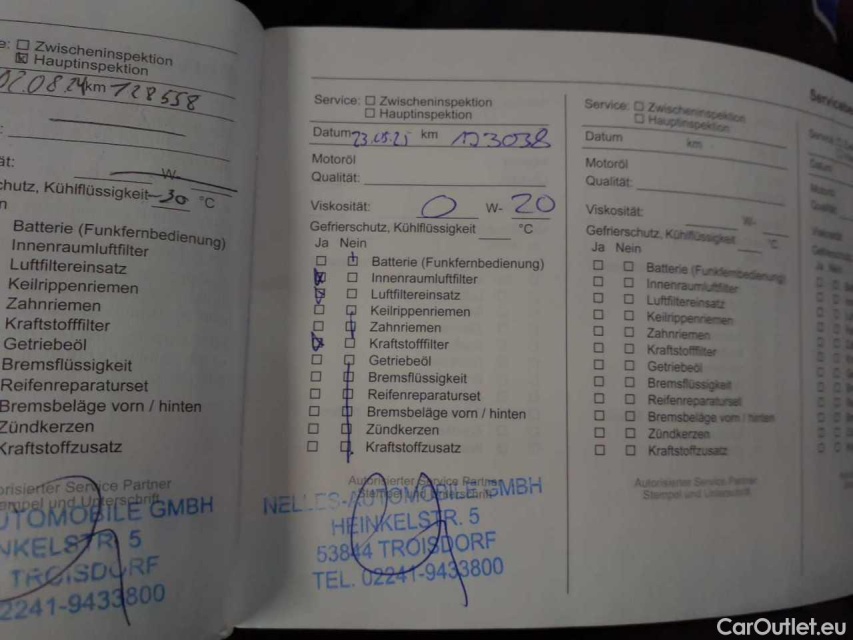 e: ☐ Zwischeninspektion
☒ Hauptinspektion
02.08.24 km 128558
W-
chutz, Kühlflüssigkeit -30 °C
Batterie (Funkfernbedienung)
Innenraumluftfilter
Luftfiltereinsatz
Keilrippenriemen
Zahnriemen
Kraftstofffilter
Getriebeöl
Bremsflüssigkeit
Reifenreparaturset
Bremsbeläge vorn / hinten
Zündkerzen
Kraftstoffzusatz
orisierter Service Partner
empel und Unterschrift
UTOMOBILE GMBH
NKELSTR. 5
TROISDORF
2241-9433800
Service: ☐ Zwischeninspektion
☐ Hauptinspektion
Datum km
Motoröl
Qualität:
Viskosität: 0 W- 20
Gefrierschutz, Kühlflüssigkeit °C
Ja Nein
Batterie (Funkfernbedienung)
Innenraumluftfilter
Luftfiltereinsatz
Keilrippenriemen
Zahnriemen
Kraftstofffilter
Getriebeöl
Bremsflüssigkeit
Reifenreparaturset
Bremsbeläge vorn / hinten
Zündkerzen
Kraftstoffzusatz
Autorisierter Service Partner
Stempel und Unterschrift
NELLES-AUTOMOBILE GMBH
HEINKELSTR. 5
53844 TROISDORF
TEL. 02241-9433800
Service: ☐ Zwischeninspektion
☐ Hauptinspektion
Datum km
Motoröl
Qualität:
Viskosität: W-
Gefrierschutz, Kühlflüssigkeit °C
Ja Nein
Batterie (Funkfernbedienung)
Innenraumluftfilter
Luftfiltereinsatz
Keilrippenriemen
Zahnriemen
Kraftstofffilter
Getriebeöl
Bremsflüssigkeit
Reifenreparaturset
Bremsbeläge vorn / hinten
Zündkerzen
Kraftstoffzusatz
Autorisierter Service Partner
Stempel und Unterschrift
CarOutlet.eu